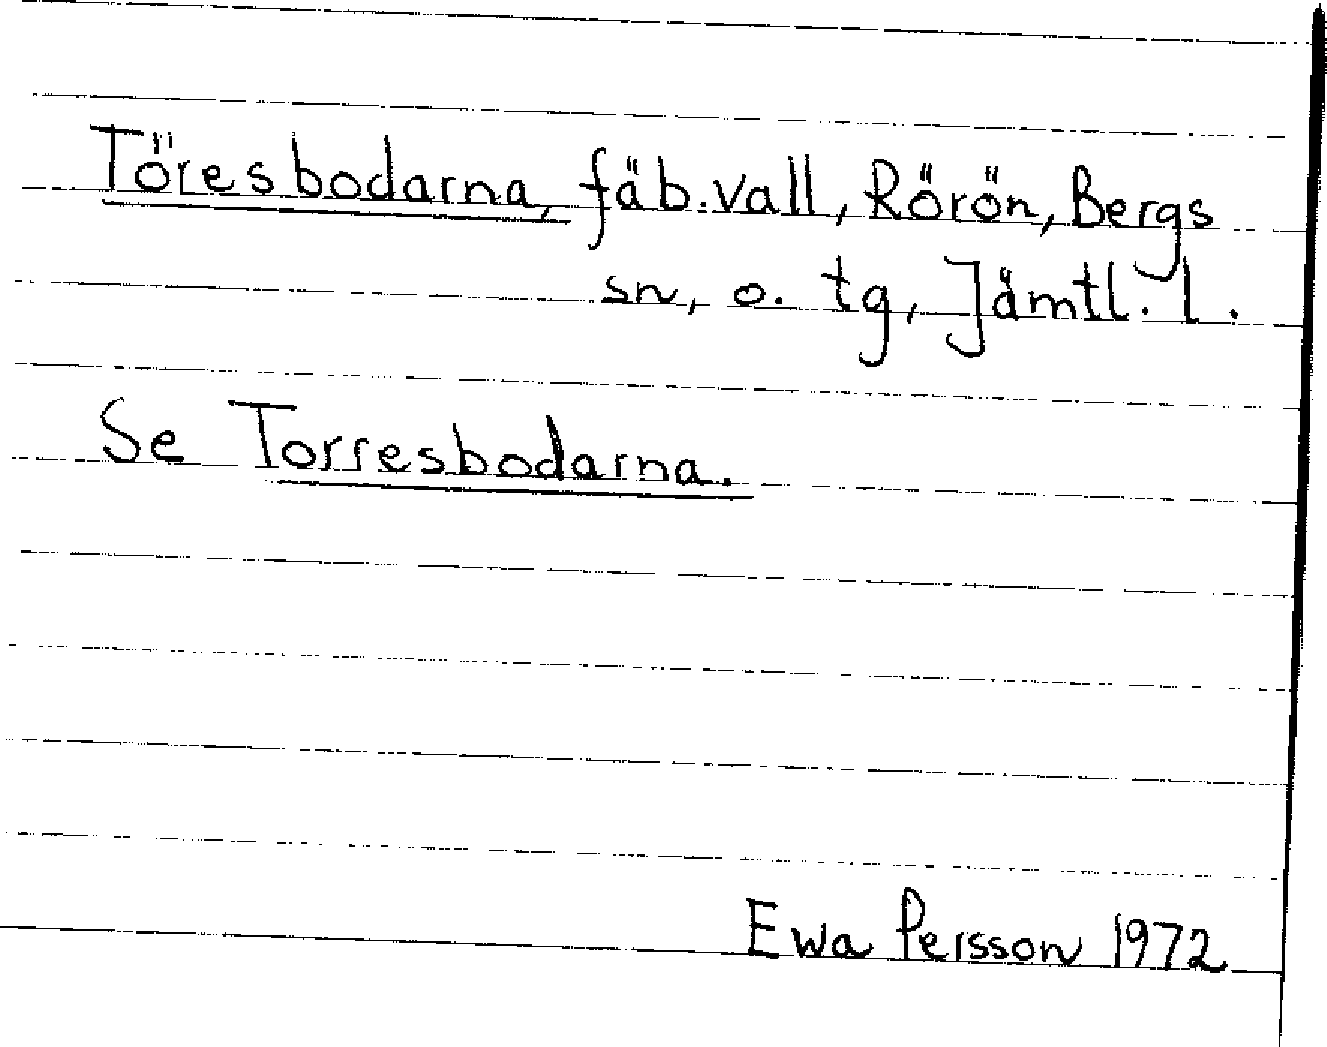 Töresbodarna, fäb.vall, Rörön, Bergs
sn, o. tg, Jämtl. l.
Se Torresbodarna.
Ewa Persson 1972